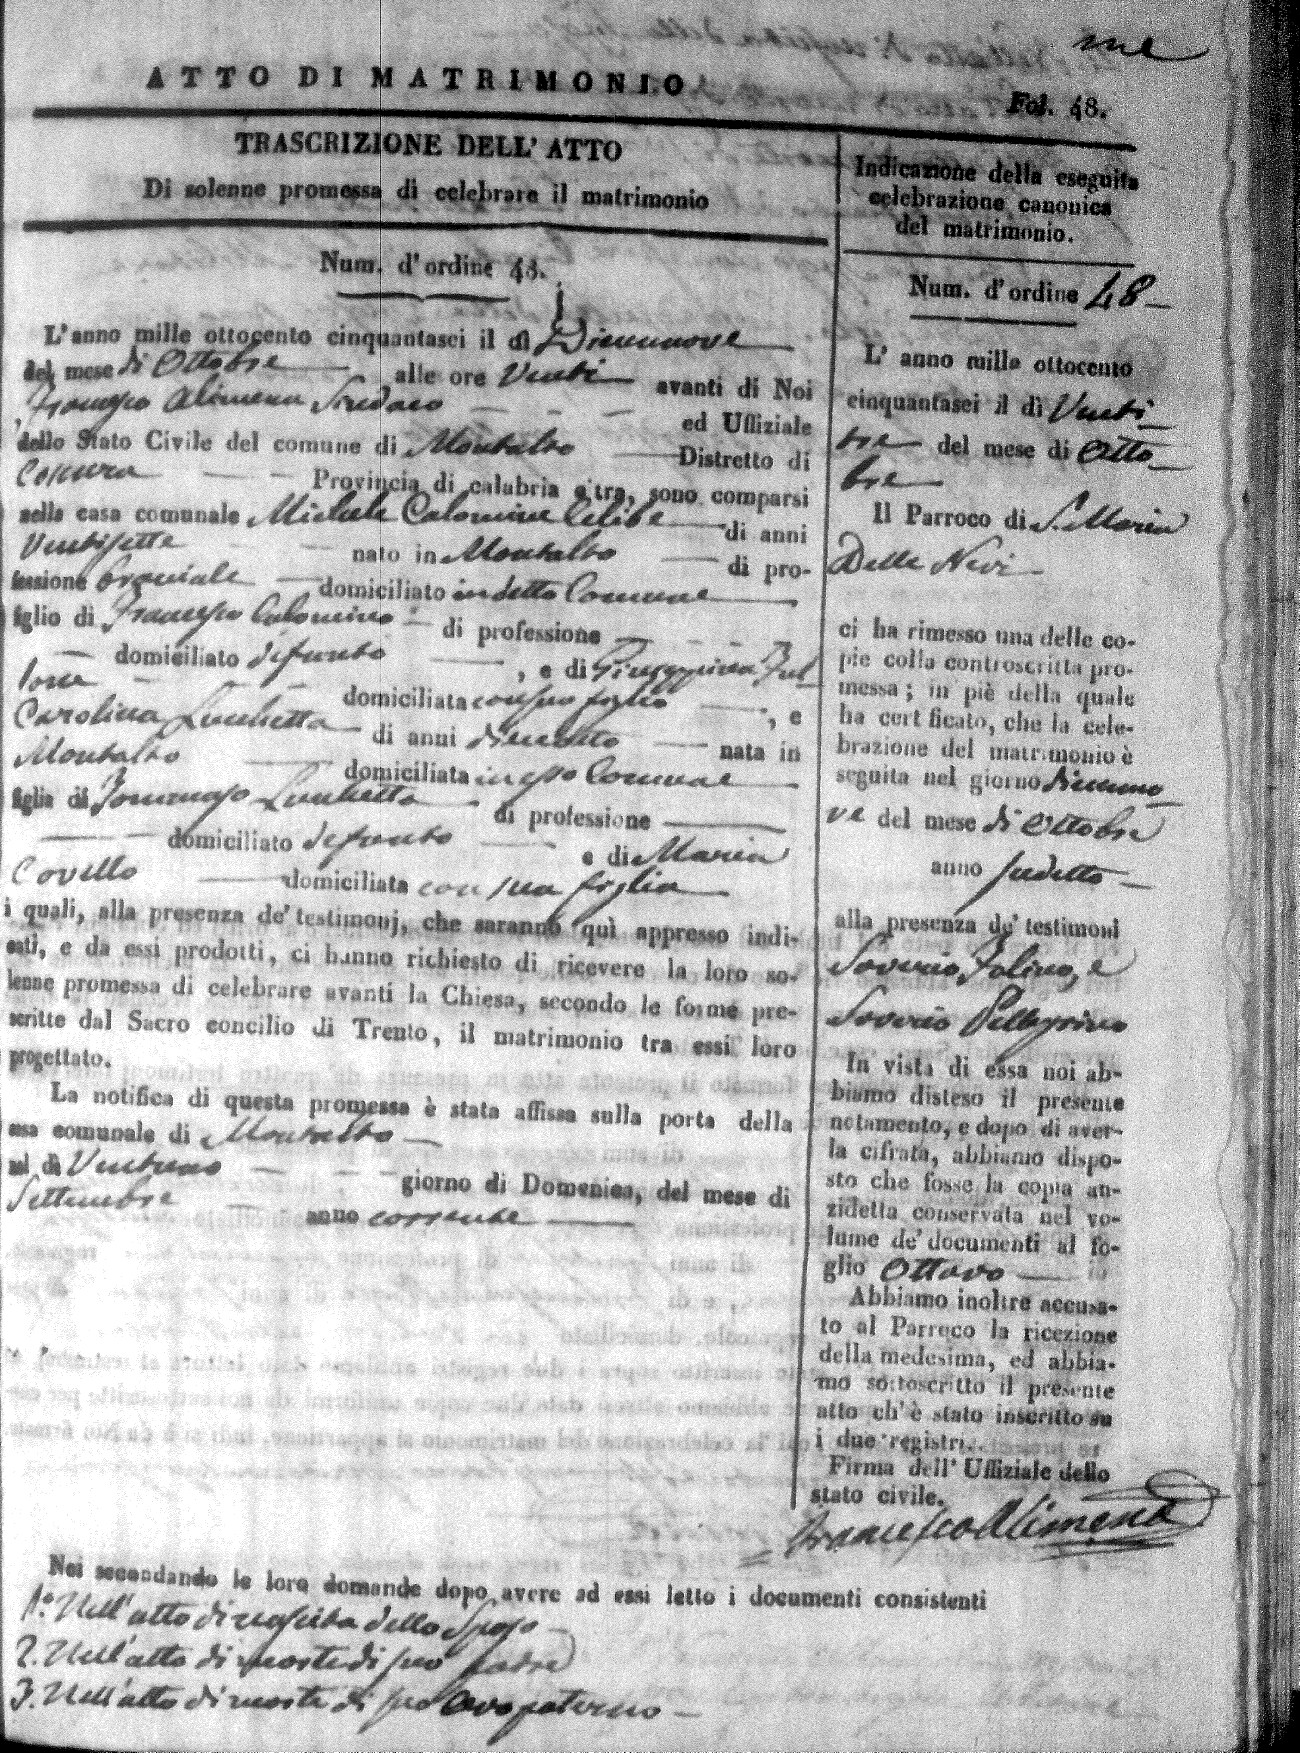 me
ATTO DI MATRIMONIO
Fol. 48.
TRASCRIZIONE DELL' ATTO
Di solenne promessa di celebrare il matrimonio
Num. d'ordine 48.
L'anno mille ottocento cinquantasei il dì Diecinnove
del mese di Ottobre alle ore Venti avanti di Noi
Francesco Alimena Sindaco ed Uffiziale
dello Stato Civile del comune di Montalto Distretto di
Cosenza Provincia di calabria citra, sono comparsi
nella casa comunale Michele Calomino Celibe di anni
Ventisette nato in Montalto di pro-
fessione domiciliato in detto Comune
figlio di Francesco Calomino di professione
domiciliato defunto , e di Giuseppina
domiciliata con suo figlio , e
Carolina Lucchetta di anni dieciotto nata in
Montalto domiciliata in esso Comune
figlia di Tommaso Lucchetta di professione
domiciliato defunto e di Maria
Covello domiciliata con sua figlia
i quali, alla presenza de' testimonj, che saranno quì appresso indi-
cati, e da essi prodotti, ci hanno richiesto di ricevere la loro so-
lenne promessa di celebrare avanti la Chiesa, secondo le forme pre-
scritte dal Sacro concilio di Trento, il matrimonio tra essi loro
progettato.
La notifica di questa promessa è stata affissa sulla porta della
casa comunale di Montalto
nel dì Ventuno giorno di Domenica, del mese di
Settembre anno corrente
Indicazione della eseguita
celebrazione canonica
del matrimonio.
Num. d'ordine 48
L' anno mille ottocento
cinquantasei il dì Venti
tre del mese di Otto
bre
Il Parroco di S. Maria
Delle Nevi
ci ha rimesso una delle co-
pie colla controscritta pro-
messa; in piè della quale
ha certificato, che la cele-
brazione del matrimonio è
seguita nel giorno diecinno
ve del mese di Ottobre
anno sudetto
alla presenza de' testimoni
Saverio Folino, e
Saverio Pellegrino
In vista di essa noi ab-
biamo disteso il presente
notamento, e dopo di aver-
la cifrata, abbiamo dispo-
sto che fosse la copia an-
zidetta conservata nel vo-
lume de' documenti al fo-
glio Ottavo
Abbiamo inoltre accusa-
to al Parroco la ricezione
della medesima, ed abbia-
mo sottoscritto il presente
atto ch'è stato inscritto su
i due registri.
Firma dell' Uffiziale dello
stato civile.
Francesco Alimena
Noi secondando le loro domande dopo avere ad essi letto i documenti consistenti
1.º Nell'atto di nascita dello Sposo
2. Nell'atto di morte di suo padre
3. Nell'atto di morte di suo Avo paterno